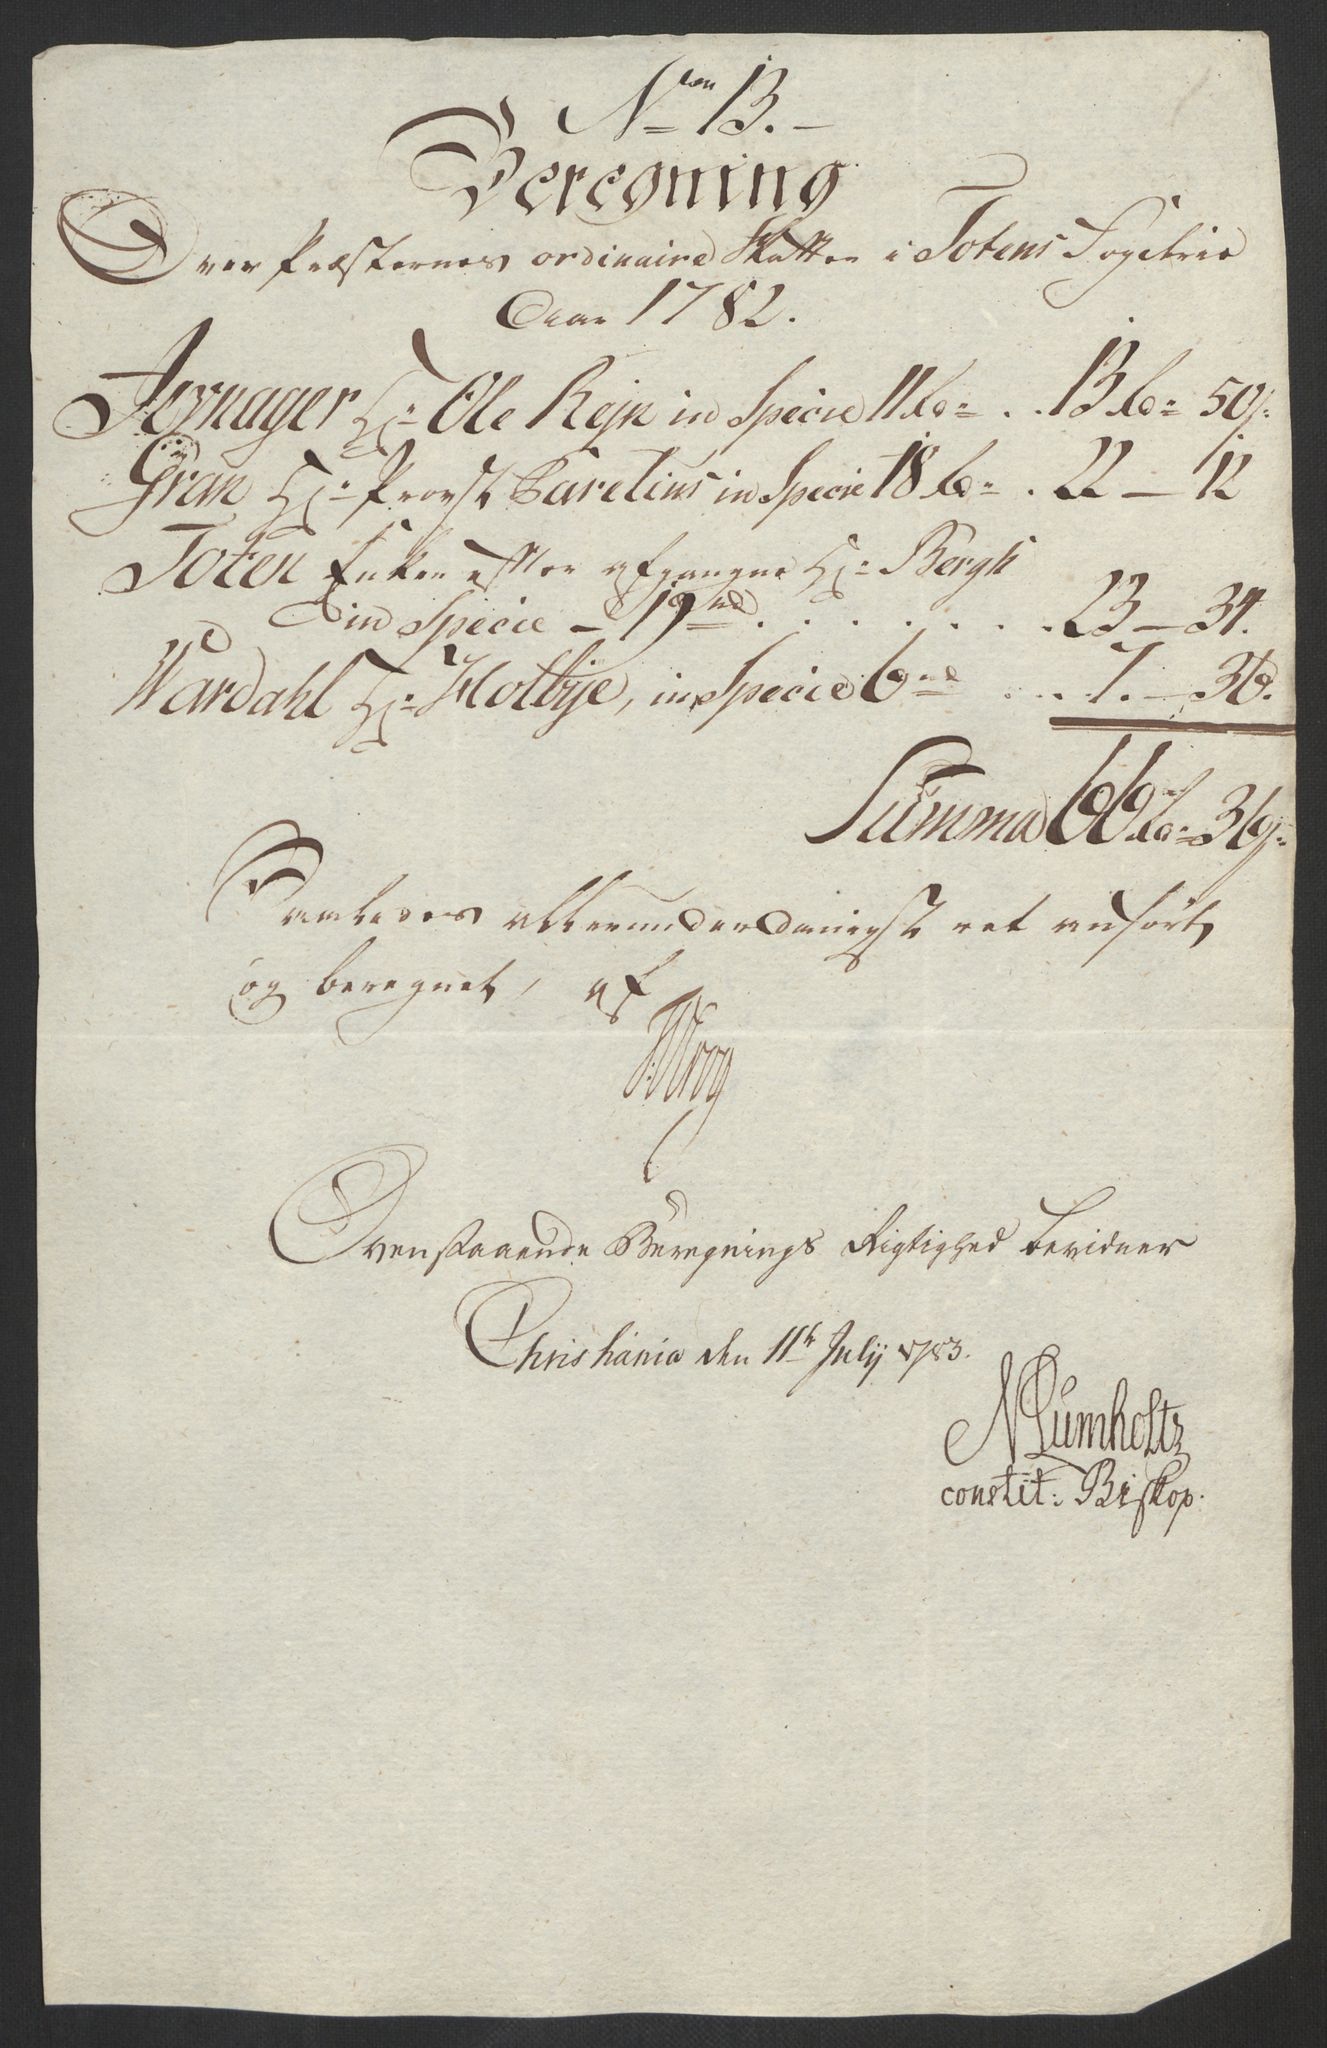 Nro 13.
Beregning
Over Præsternes ordinaire Skatter i Totens Fogderie
Aar 1782.
Jevnager Hr Ole Rejn in Specie 11 rd .. 13 rd 50 s:
Gran Hr Provst Caretius in Specie 18 rd . 22 — 12
Toten Enken efter afgangne Hr Bergh
in Specie – 19 rd . . . . . . . . 23 — 34.
Wardahl Hr Holbye, in Specie 6 rd ... 7. — 36.
Summa 66 rd 36 s:
Saaledes allerunderdanigst ret anført
og beregnet, af
Ovenstaaende Beregnings Rigtighed bevidner
Christiania den 11te July 1783.
N Lumholtz
constit: Biskop.